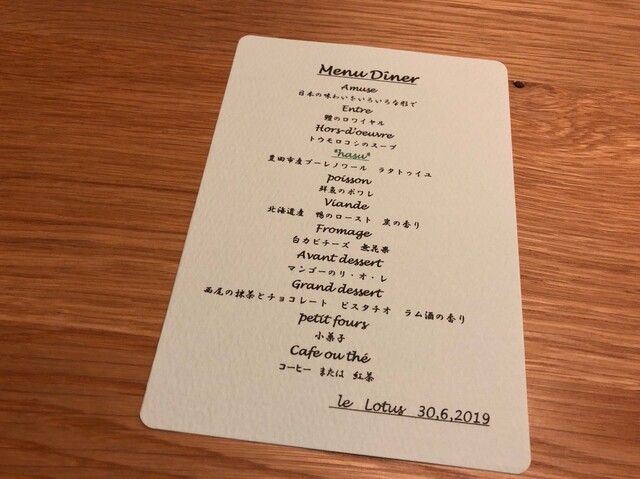 Menu Dîner
Amuse
日本の味わいをいろいろな形で
Entre
鰻のロワイヤル
Hors-d'oeuvre
トウモロコシのスープ
*hasu*
豊田市産プーレノワール ラタトゥイユ
poisson
鮮魚のポワレ
Viande
北海道産 鴨のロースト 炭の香り
Fromage
白カビチーズ 無花果
Avant dessert
マンゴーのリ・オ・レ
Grand dessert
西尾の抹茶とチョコレート ピスタチオ ラム酒の香り
petit fours
小菓子
Cafe ou thé
コーヒー または 紅茶
le Lotus 30,6,2019